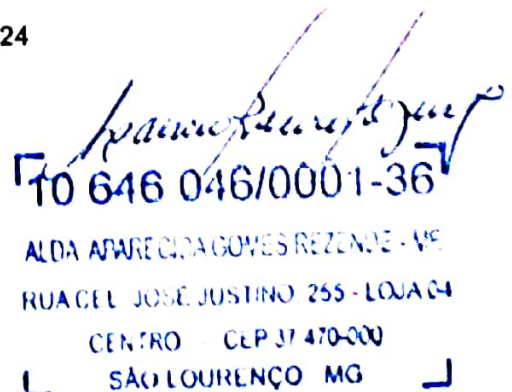 24
10 646 046/0001-36
ALDA APARECIDA GOMES REZENDE - ME
RUA CEL JOSÉ JUSTINO, 255 - LOJA 04
CENTRO CEP 37 470-000
SÃO LOURENÇO MG